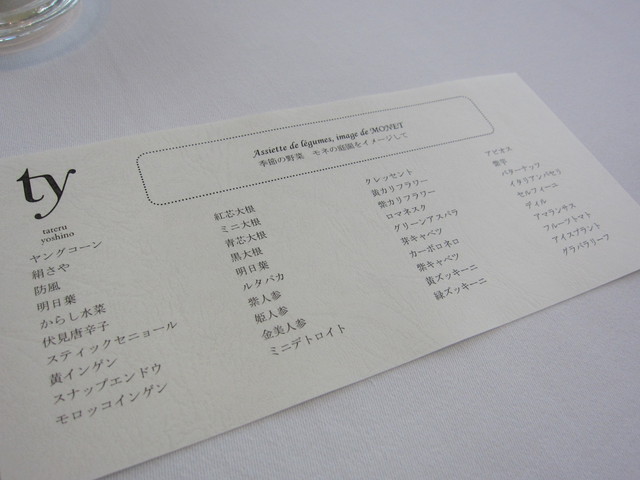 ty
tateru
yoshino
Assiette de légumes, image de MONET
季節の野菜 モネの庭園をイメージして
ヤングコーン
絹さや
防風
明日葉
からし水菜
伏見唐辛子
スティックセニョール
黄インゲン
スナップエンドウ
モロッコインゲン
紅芯大根
ミニ大根
青芯大根
黒大根
明日葉
ルタバカ
紫人参
姫人参
金美人参
ミニデトロイト
クレッセント
黄カリフラワー
紫カリフラワー
ロマネスク
グリーンアスパラ
芽キャベツ
カーボロネロ
紫キャベツ
黄ズッキーニ
緑ズッキーニ
アピオス
紫芋
バターナッツ
イタリアンパセリ
セルフィーユ
ディル
アマランサス
フルーツトマト
アイスプラント
グラパラリーフ